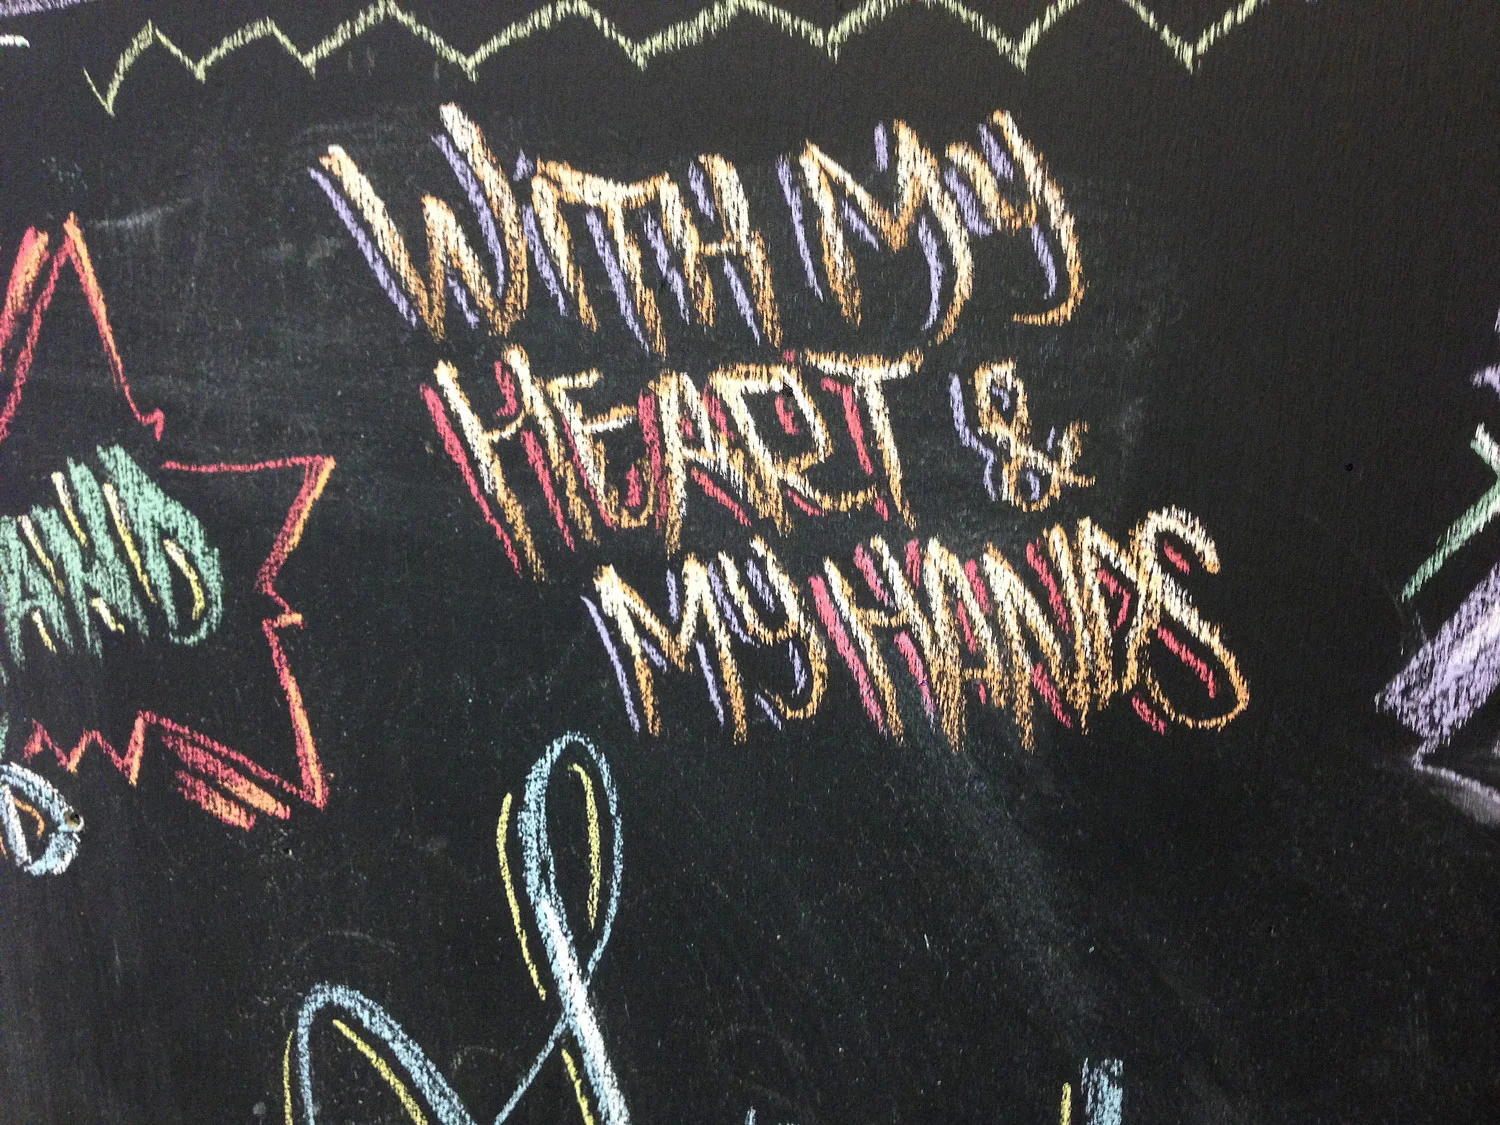 WITH My
HEART &
My HANDS
AND